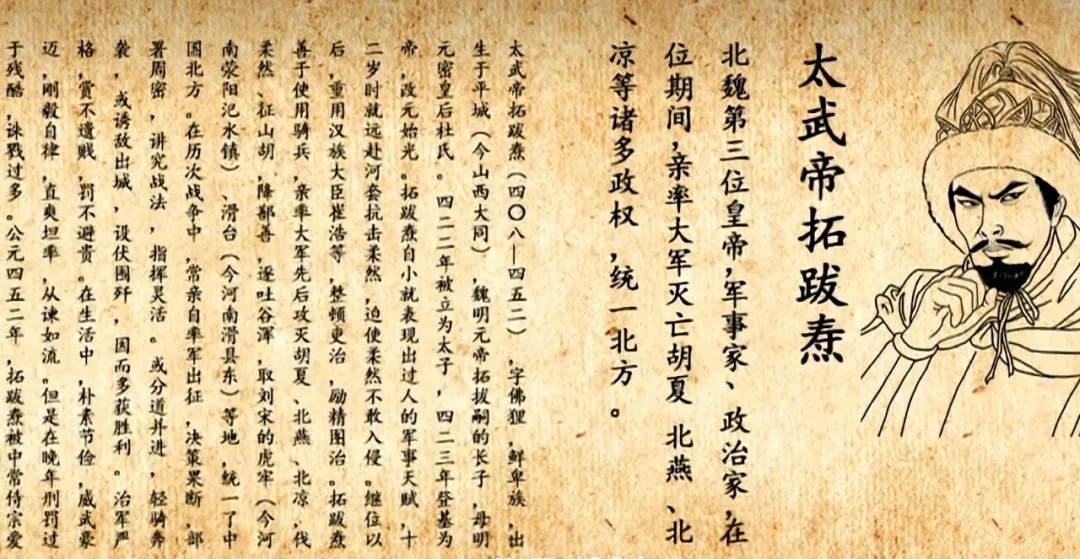 太武帝拓跋焘
北魏第三位皇帝,军事家、政治家,在
位期间,亲率大军灭亡胡夏 北燕、北
凉等诸多政权,统一北方。
太武帝拓跋焘(四〇八—四五二),字佛狸,鲜卑族,出
生于平城(今山西大同),魏明元帝拓拔嗣的长子,母明
元密皇后杜氏。四二二年被立为太子,四二三年登基为
帝,改元始光。拓跋焘自小就表现出过人的军事天赋,十
二岁时就远赴河套抗击柔然,迫使柔然不敢入侵。继位以
后,重用汉族大臣崔浩等,整顿吏治,励精图治。拓跋焘
善于使用骑兵,亲率大军先后攻灭胡夏、北燕、北凉,伐
柔然、征山胡,降鄯善,逐吐谷浑,取刘宋的虎牢(今河
南荥阳汜水镇)、滑台(今河南滑县东)等地,统一了中
国北方。在历次战争中,常亲自率军出征,决策果断,部
署周密,讲究战法,指挥灵活。或分道并进,轻骑奔
袭,或诱敌出城,设伏围歼,因而多获胜利。治军严
格,赏不遗贱,罚不避贵。在生活中,朴素节俭,威武豪
迈,刚毅自律,直爽坦率,从谏如流。但是在晚年刑罚过
于残酷,诛戮过多。公元四五二年,拓跋焘被中常侍宗爱